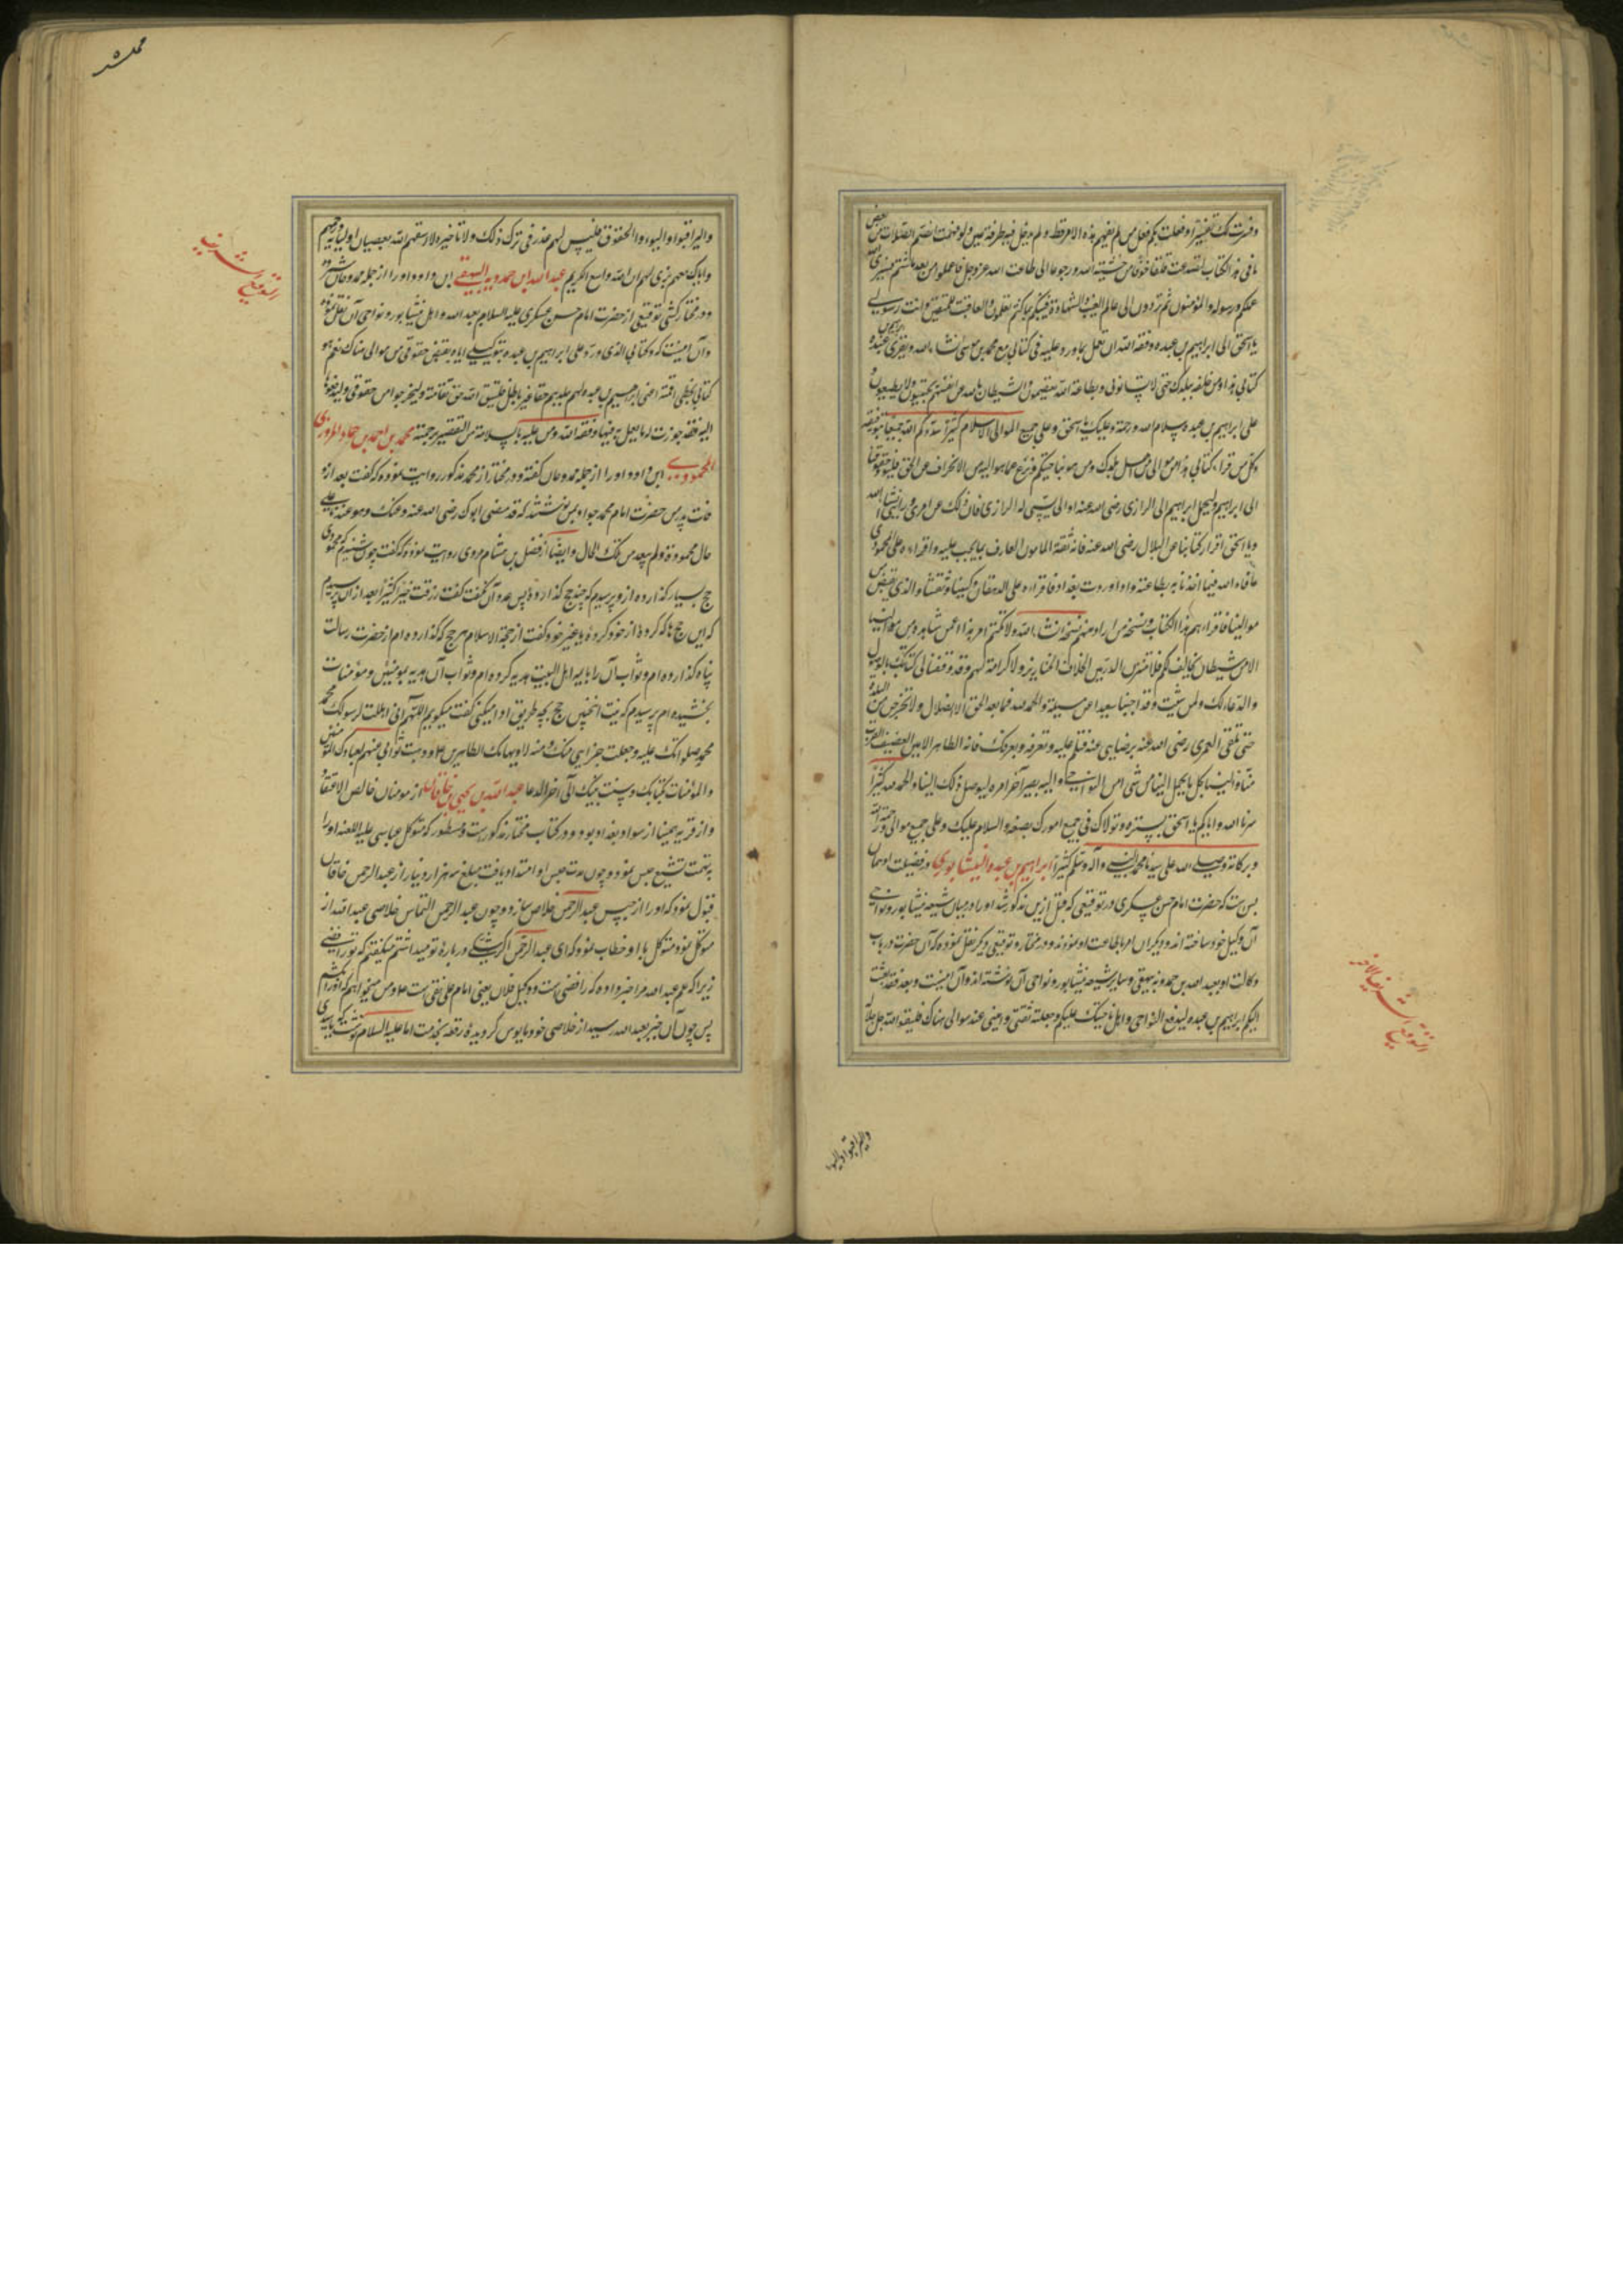 وفسرت لک تفسیرا و فعلت بکم فعل من لم یفهم هذه الامر قط و لم یدخل فیه طرفة عین ولو فهمت الصم الصلاب بعض
ما فی هذا الکتاب لتصدعت قلقا خوفا من خشیة الله و رجوعا الی طاعت الله عز و جل فاعملوا من بعد ما شئتم فسیری الله
عملکم و رسوله و المؤمنون ثم تردون الی عالم الغیب و الشهادة فینبئکم بما کنتم تعملون و العاقبت للمتقین و انت رسولی
یا اسحق الی ابراهیم بن عبده وفقه الله ان یعمل بما ورد علیه فی کتابی مع محمد بن موسی
کتابی هذا و من خلفه ببلدک حتی لا یتسائلونی و بطاعة الله یعتصمون و الشیطان بالله عن انفسهم یجتنبون و لا یطیعون
علی ابراهیم بن عبده سلام الله و رحمته و علیک یا اسحق و علی جمیع الموالی السلام کثیرا سددکم الله جمیعا بتوفیقه
و کل من قرأ کتابی هذا من موالی من اهل بلدک و من هو بناحیتکم و نزع عما هو الیه من الانحراف عن الحق فلیؤد حقوقنا
الی ابراهیم و لیحمل ابراهیم الی الرازی رضی الله عنه او الی من یسمی له الرازی فان ذلک عن امری و رایی انشاء الله
و یا اسحق اقرأ کتابنا علی البلالی رضی الله عنه فانه ثقة المامون العارف بما یجب علیه و اقراءه علی المحمودی
عافاه الله فما احمدنا به بطاعته و اذا وردت بغداد فاقراءه علی الدهقان وکیلنا و ثقتنا و الذی یقبض من
موالینا فاقراءهم هذا الکتاب و نسخه من اراد منهم نسخه انشاء الله و لا یکتم امر هذا عمن شاهده من موالینا
الا من شیطان مخالف لکم فلا تنثرن الدر بین اظلاف الخنازیر و لا کرامة لهم و قد وقعنا فی کتابک بالوصول
و الدعا لک و لمن شئت و قد اجبنا سعیدا عن مسئلته و الحمد لله فما بعد الحق الا الضلال و لا تخرجن من البلده
حتی تلقی العمری رضی الله عنه برضایی عنه فتسلم علیه و تعرفه و یعرفک فانه الطاهر الامین العفیف القریب
منا و الینا فکل ما یحمل الینا من شی من النواحی فالیه یصیر آخر امره لیوصل ذلک الینا و الحمد لله کثیرا
سترنا الله و ایاکم یا اسحق بستره و تولاک فی جمیع امورک بصنعه و السلام علیک و علی جمیع موالی و رحمة الله
و برکاته و صلی الله علی سیدنا محمد النبی و آله و سلم کثیرا ابراهیم بن عبده النیشابوری در فضیلت او همان
بس ست که حضرت امام حسن عسکری در توقیعی که قبل ازین مذکور شد او را در میان شیعه نیشابور و نواحی
آن وکیل خود ساخته اند و دیگران را امر باطاعت او نموده و در مختار توقیعی دیگر نقل نموده که آن حضرت در باب
وکالت او بعبد الله بن حمدویه بیهقی و سایر شیعه نیشابور و نواحی آن نوشته اند و آن اینست و بعد فقد بعثت
الیکم ابراهیم بن عبده لیدفع النواحی و اهل ناحیتک علیکم و جعلته ثقتی و امینی عند موالی هناک فلیتقوا الله جل جلاله
و لیراقبوا و لیؤدوا الحقوق فلیس لهم عذر فی ترک ذلک و لا تاخیره و لا اشقاهم الله بعصیان اولیائه و رحمهم
و ایاک معهم برحمتی لهم ان الله واسع کریم عبد الله ابن حمدویه البیهقی ابن داود او را از جمله ممدوحان شمرده
و در مختار کشی توقیعی از حضرت امام حسن عسکری علیه السلام بعبد الله و اهل نیشابور و نواحی آن نقل نموده
و آن اینست که و کتابی الذی ورد علی ابراهیم بن عبده بتوکیلی ایاه بقبض حقوقی من موالی هناک نعم هو
کتابی بخطی اقمته اعنی ابراهیم بن عبده لهم ببلدهم حقا غیر باطل فلیتق الله حق تقاته و لیخرجوا من حقوقی و لیدفعوها
الیه فقد جوزت له ما یعمل به فیها وفقه الله و من علیه بالسلامة من التقصیر برحمته محمد بن احمد بن حماد المروزی
المحمودی ابن داود او را از جمله ممدوحان گفته و در مختار از محمد مذکور روایت نموده که گفت بعد از
فوت پدر من حضرت امام محمد جواد بمن نوشتند که قد مضی ابوک رضی الله عنه و عنک و هو عندنا علی
حال محمودة و لم یبعد من تلک الحال و ایضا از فضل بن هشام هروی روایت نموده که گفت چون شنیدم که محمودی
حج بسیار گذارده ازو پرسیدم که چند حج گذارده پس عدد آن نگفت گفت رزقت خیرا کثیرا بعد از آن پرسیدم
که این حج ها که کرده از خود کرده یا غیر خود گفت از حجة الاسلام هر حج که گذارده ام از حضرت رسالت
پناه گذارده ام و ثواب آن را باهل البیت هدیه کرده ام و ثواب آن هدیه بمومنین و مؤمنات
بخشیده ام پرسیدم که نیت اینچنین حج بچه طریق ادا میکنی گفت میگویم اللهم انی اهللت لرسولک محمد
صلواتک علیه و جعلت جزایی منک و منه لاولیائک الطاهرین و وهبت ثوابی منهم لعبادک المؤمنین
و المؤمنات بکتابک و سنت نبیک الی آخر الدعا عبد الله بن یحیی بن خاقان از مومنان خالص الاعتقاد
و از قریه بمینا از سواد بغداد بود و در کتاب مختار مذکورست و مسطور که متوکل عباسی علیه اللعنه او را
بتهمت تشیع حبس نمود و چون مدت حبس او امتداد یافت مبلغ سه هزار دینار از عبد الرحمن خاقان
قبول نمود که او را از حبس عبد الرحمن خلاص سازد و چون عبد الرحمن التماس خلاصی عبد الله از
متوکل نمود متوکل با او خطاب نمود که ای عبد الرحمن اگر شکی درباره تو میداشتم میگفتم که تو رافضی
زیرا که علم عبد الله مرا خبر داده که رافضی ست و وکیل فلان یعنی امام علی نقی ست و من میخواهم که او را بکشم
پس چون آن خبر بعبد الله رسید از خلاصی خود مایوس گردیده رقعه بخدمت امام علیه السلام نوشت که یا سیدی
التوقیع الشریف
التوقیع الشریف الآخر
ولیراقبوا و لیؤدوا